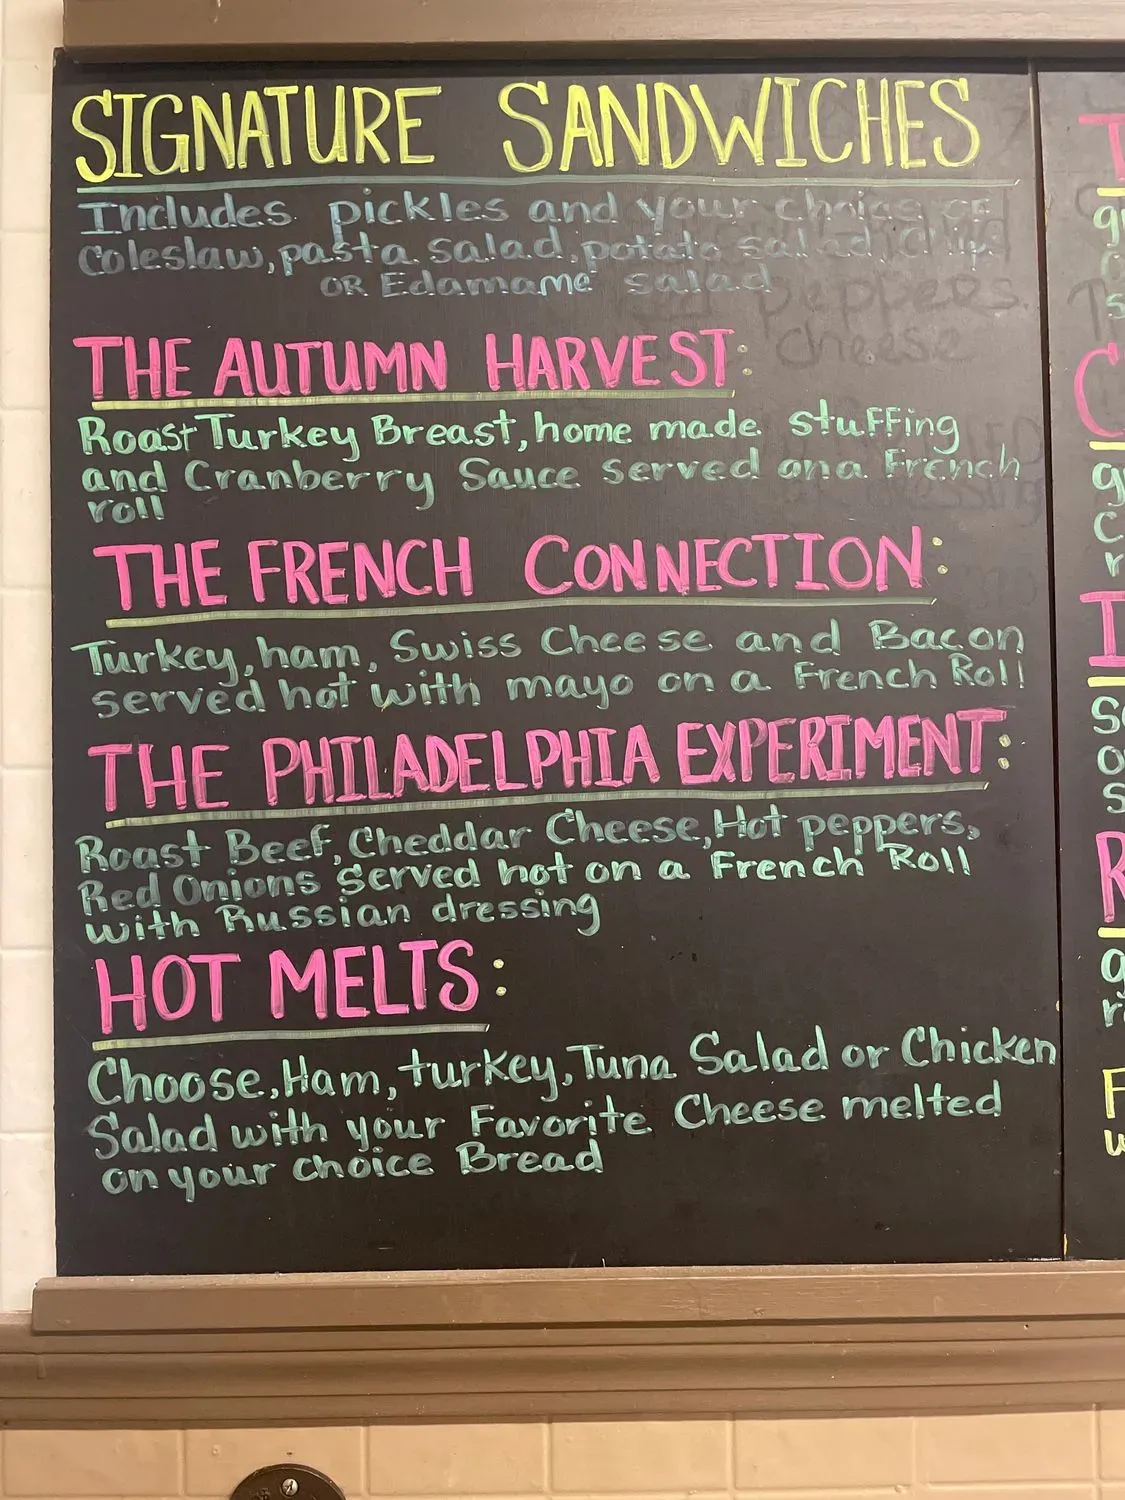 SIGNATURE SANDWICHES
Includes pickles and your choice of
Coleslaw, pasta salad, potato salad, Chips
OR Edamame salad
THE AUTUMN HARVEST:
Roast Turkey Breast, home made stuffing
and Cranberry Sauce served on a French
roll
THE FRENCH CONNECTION:
Turkey, ham, Swiss Cheese and Bacon
served hot with mayo on a French Roll
THE PHILADELPHIA EXPERIMENT:
Roast Beef, Cheddar Cheese, Hot peppers,
Red Onions served hot on a French Roll
with Russian dressing
HOT MELTS:
Choose, Ham, turkey, Tuna Salad or Chicken
Salad with your Favorite Cheese melted
on your choice Bread
peppers
cheese